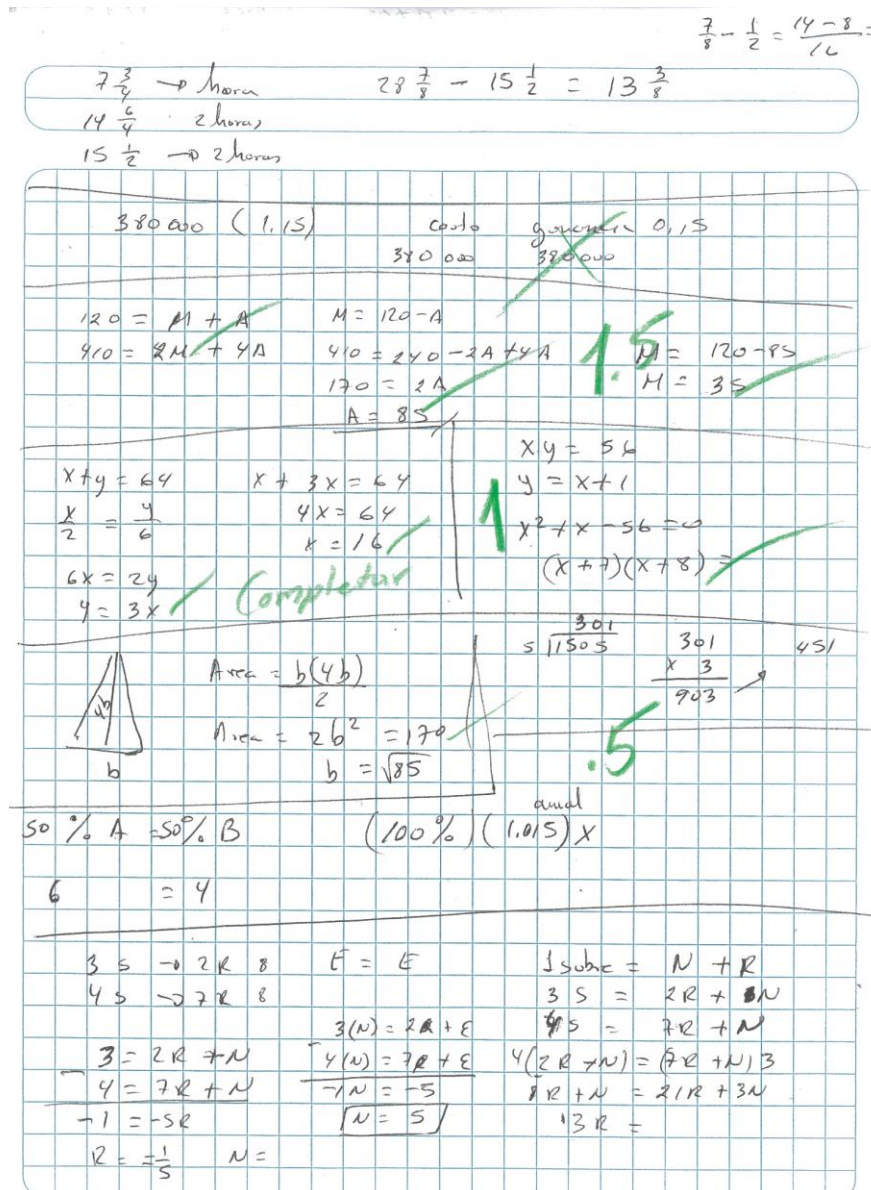 7/8 - 1/2 = 14 - 8/16 =
7 3/4 → hora
28 7/8 - 15 1/2 = 13 3/8
14 6/4 2 horas
15 1/2 → 2 horas
380 000 (1.15)
costo
ganancia 0,15
380 000
380000
120 = M + A
410 = 2M + 4A
M = 120-A
410 = 240 - 2A + 4A
170 = 2A
A = 85
1.5
M = 120-85
M = 35
x+y = 64
x/2 = y/6
6x = 2y
y = 3x
x + 3x = 64
4x = 64
x = 16
Completar
xy = 56
y = x+1
1
x² + x - 56 = 0
(x+7)(x+8) =
4b
b
Area = b(4b)/2
Area = 2b² = 170
b = √85
301
5 1505
301
x 3
903
451
.5
50 % A = 50% B
anual
(100%) (1.015) x
6 = 4
3 S → 2R 8
4 S → 7R 8
3 = 2R + N
- 4 = 7R + N
-1 = -5R
R = -1/5 N =
E = E
3(N) = 2R + E
- 4(N) = 7R + E
-1N = -5
N = 5
1 sube = N + R
3 S = 2R + N
4S = 7R + N
4(2R + N) = (7R + N) 3
8R + N = 21R + 3N
13R =